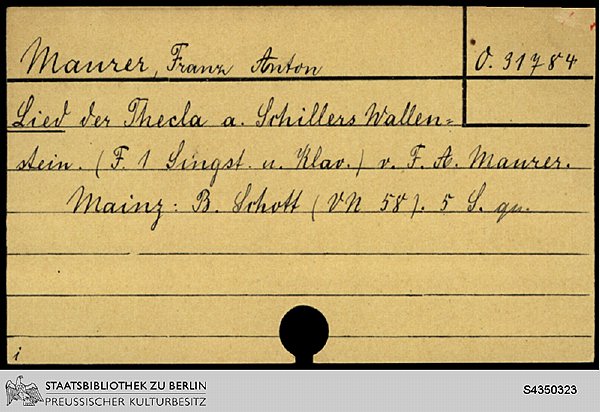 Maurer, Franz Anton
O. 31784
Lied der Thecla a. Schillers Wallen=
stein. (F. 1 Singst. u. Klav.) v. F. A. Maurer.
Mainz: B. Schott (VN 58). 5 S. qu.
i
STAATSBIBLIOTHEK ZU BERLIN
PREUSSISCHER KULTURBESITZ
S4350323